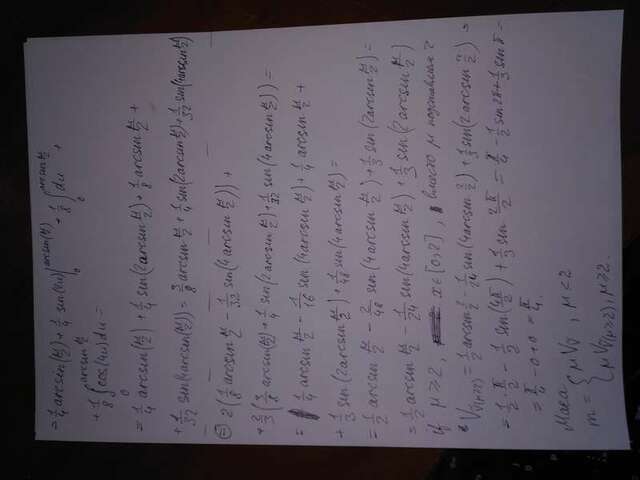 = 1/4 arcsin(μ/2) + 1/4 sin(2u)|₀^arcsin(μ/2) + 1/8 ∫₀^arcsin μ/2 du +
+ 1/8 ∫₀^arcsin μ/2 cos(4u)du =
= 1/4 arcsin(μ/2) + 1/4 sin(2arcsin μ/2) + 1/8 arcsin μ/2 +
+ 1/32 sin(4arcsin(μ/2)) = 3/8 arcsin μ/2 + 1/4 sin(2arcsin μ/2) + 1/32 sin(4arcsin μ/2)
= 2(1/8 arcsin μ/2 - 1/32 sin(4arcsin μ/2)) +
+ 2/3(3/8 arcsin(μ/2) + 1/4 sin(2arcsin μ/2) + 1/32 sin(4arcsin μ/2)) =
= 1/4 arcsin μ/2 - 1/16 sin(4arcsin μ/2) + 1/4 arcsin μ/2 +
+ 1/3 sin(2arcsin μ/2) + 1/48 sin(4arcsin μ/2) =
= 1/2 arcsin μ/2 - 2/48 sin(4arcsin μ/2) + 1/3 sin(2arcsin μ/2) =
= 1/2 arcsin μ/2 - 1/24 sin(4arcsin μ/2) + 1/3 sin(2arcsin μ/2)
if μ ≥ 2 x ∈ [0,2], вместо μ подставляем 2
= 1/2 arcsin 2/2 - 1/24 sin(4arcsin 2/2) + 1/3 sin(2arcsin 2/2) =
= π/4 - 0 + 0 = π/4.
Маса
m = { , μ < 2
, μ ≥ 2.